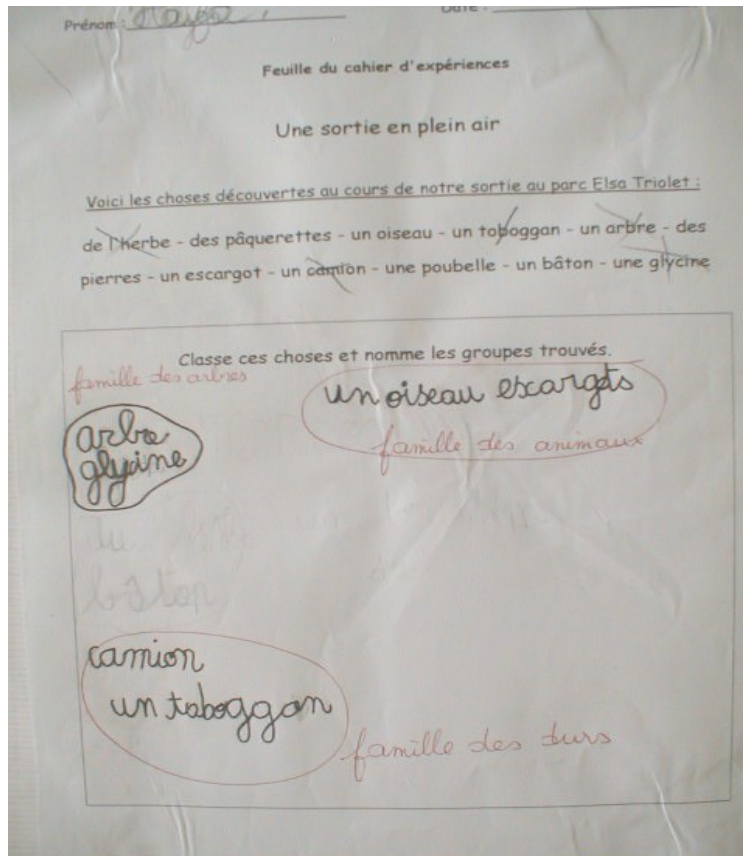 Prénom :
Date :
Feuille du cahier d'expériences
Une sortie en plein air
Voici les choses découvertes au cours de notre sortie au parc Elsa Triolet :
de l'herbe - des pâquerettes - un oiseau - un toboggan - un arbre - des
pierres - un escargot - un camion - une poubelle - un bâton - une glycine
Classe ces choses et nomme les groupes trouvés.
famille des arbres
un oiseau escargots
arbre
glycine
famille des animaux
du
bâton
camion
un taboggan
famille des durs